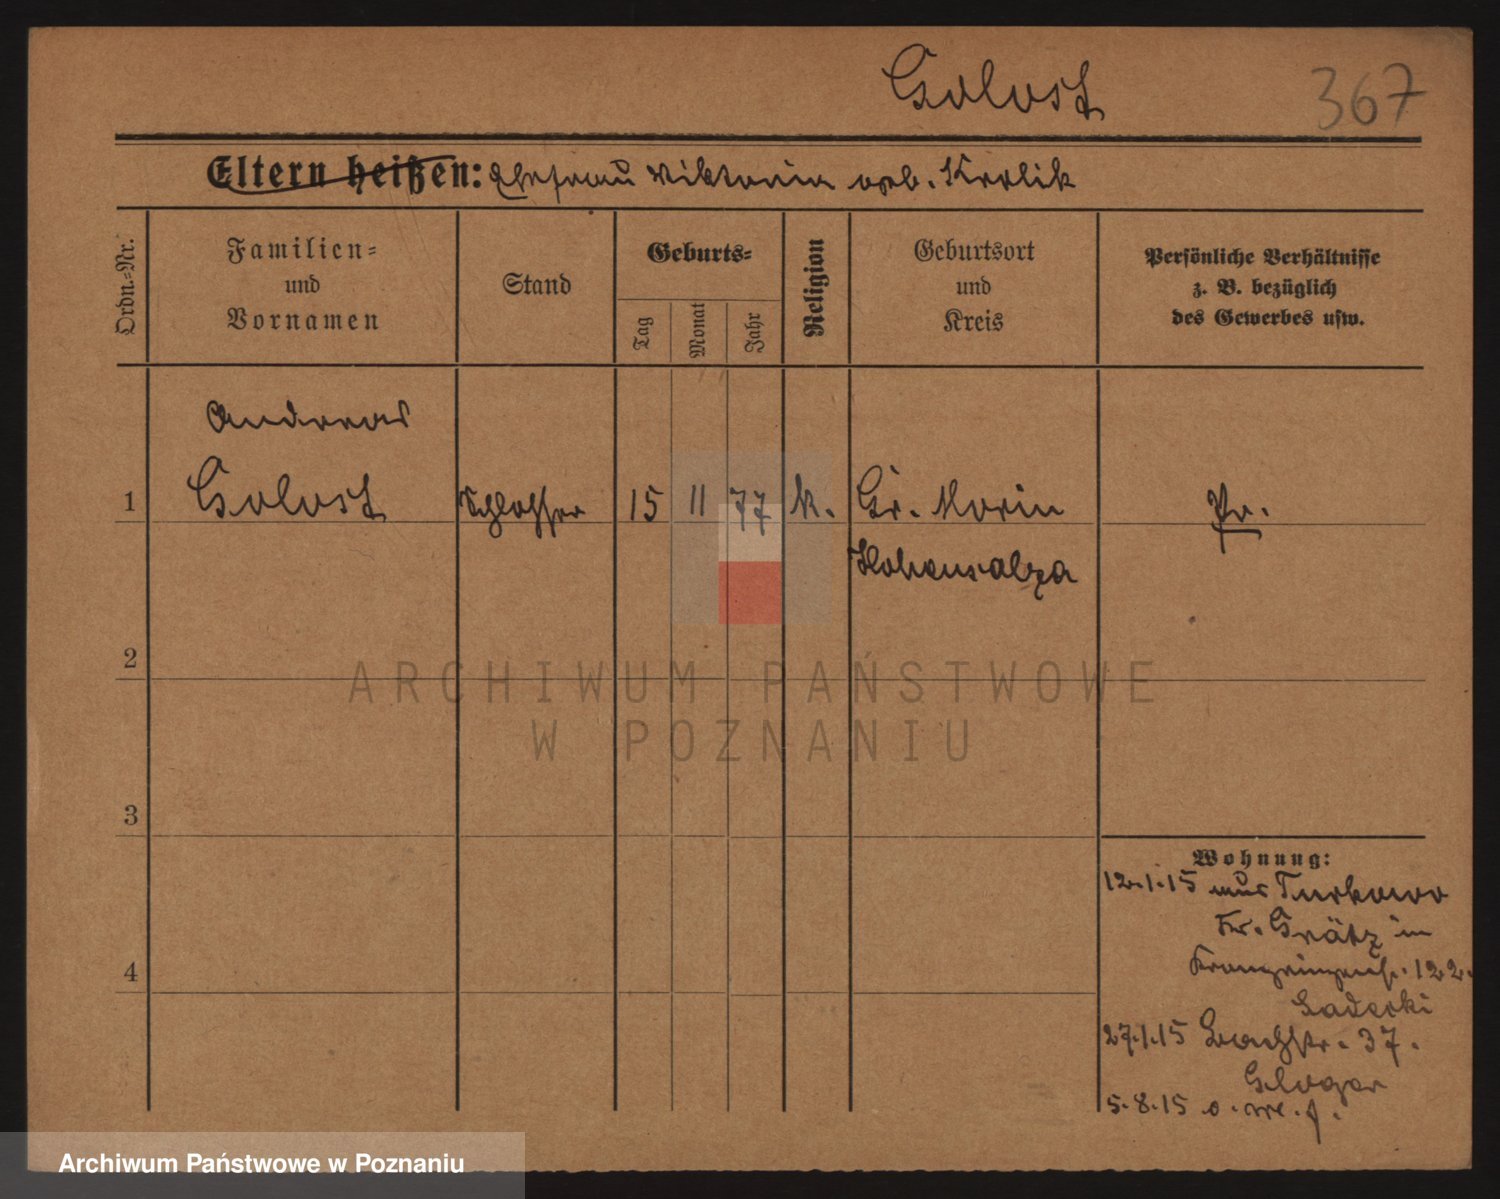 Golost 367
Eltern heißen: Ehefrau Viktoria geb. Krolik
Ordn.-Nr.
Familien-
und
Vornamen
Stand
Geburts-
Tag
Monat
Jahr
Religion
Geburtsort
und
Kreis
Persönliche Verhältnisse
z. B. bezüglich
des Gewerbes usw.
Andreas
1 Golost Schlosser 15 11 77 k. Gr. Morin Pr.
Hohensalza
2
3
4
Wohnung:
12.1.15 aus Turkowo
Kr. Grätz in
Kronprinzenstr. 122.
Saderki
27.1.15 Bachstr. 37.
Gloger
5.8.15
ARCHIWUM PAŃSTWOWE
W POZNANIU
Archiwum Państwowe w Poznaniu